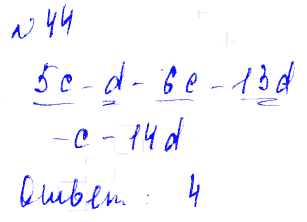 № 44
5c - d - 6c - 13d
-c - 14d
Ответ: 4